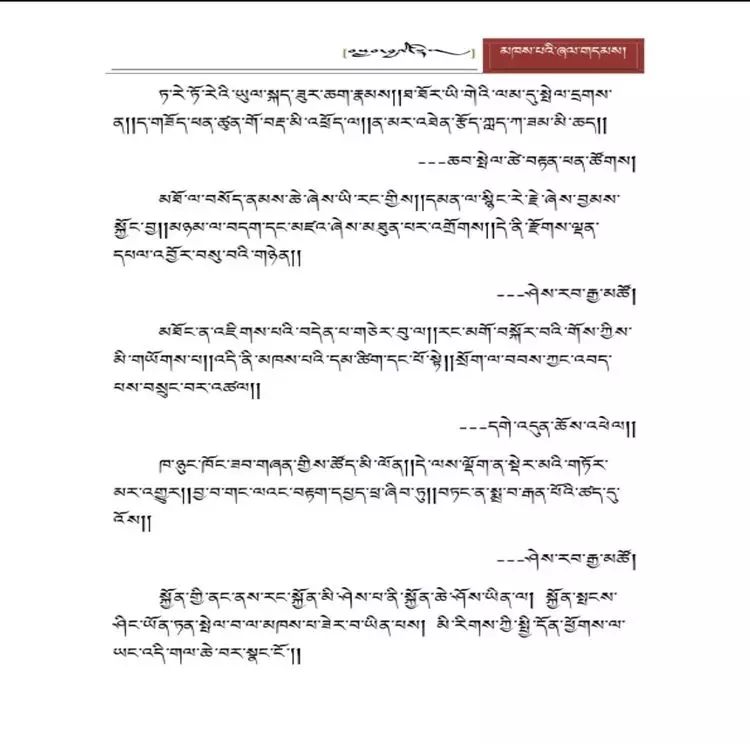 མཁས་པའི་ཞལ་གདམས།
ཏ་རེ་ཧོ་རེའི་ཡུལ་སྐད་ཟུར་ཆག་རྣམས།།ཐ་ཐོར་ཡི་གེའི་ལམ་དུ་སྤེལ་དྲགས་
ན།།ད་གཟོད་ཕན་ཚུན་གོ་བརྡ་མི་འཕྲོད་ལ།།ན་མར་འཐེན་རྩོད་ཀླད་ཀ་ཟམ་མི་ཆད།།
---ཆབ་སྤེལ་ཚེ་བརྟན་ཕན་ཚོགས།
མཐོ་ལ་བསོད་ནམས་ཆེ་ཞེས་ཡི་རང་གྱིས།།དམན་ལ་སྙིང་རེ་རྗེ་ཞེས་བྱམས་
སྐྱོང་བྱ།།མཉམ་ལ་བདག་དང་མཛའ་ཞེས་མཐུན་པར་འགྲོགས།།དེ་ནི་རྫོགས་ལྡན་
དཔལ་འབྱོར་བསུ་བའི་གཉེན།།
---ཤེས་རབ་རྒྱ་མཚོ།
མཐོང་ན་འཇིགས་པའི་བདེན་པ་གཅེར་བུ་ལ།།རང་མགོ་བསྐོར་བའི་གོས་ཀྱིས་
མི་གཡོགས་པ།།འདི་ནི་མཁས་པའི་དམ་ཚིག་དང་པོ་སྟེ།།སྲོག་ལ་བབས་ཀྱང་འབད་
པས་བསྲུང་བར་འཚལ།།
---དགེ་འདུན་ཆོས་འཕེལ།།
ཁ་ཉུང་ཁོང་ཟབ་གཞན་གྱིས་ཚོད་མི་ལོན།།དེ་ལས་ལྡོག་ན་སྡེར་མའི་གཏོར་
མར་འགྱུར།།བྱ་བ་གང་ལའང་བརྟག་དཔྱད་ཕྲ་ཞིབ་ཏུ།།བཏང་ན་སྨྲ་བ་རྒན་པོའི་ཚད་དུ་
འོས།།
---ཤེས་རབ་རྒྱ་མཚོ།
སྐྱོན་གྱི་ནང་ནས་རང་སྐྱོན་མི་ཤེས་པ་ནི་སྐྱོན་ཆེ་ཤོས་ཡིན་ལ། སྐྱོན་སྤངས་
ཤིང་ཡོན་ཏན་སྤེལ་བ་ལ་མཁས་པ་ཟེར་བ་ཡིན་པས། མི་རིགས་ཀྱི་སྤྱི་དོན་ཕྱོགས་ལ་
ཡང་འདི་གལ་ཆེ་བར་སྣང་ངོ་།།